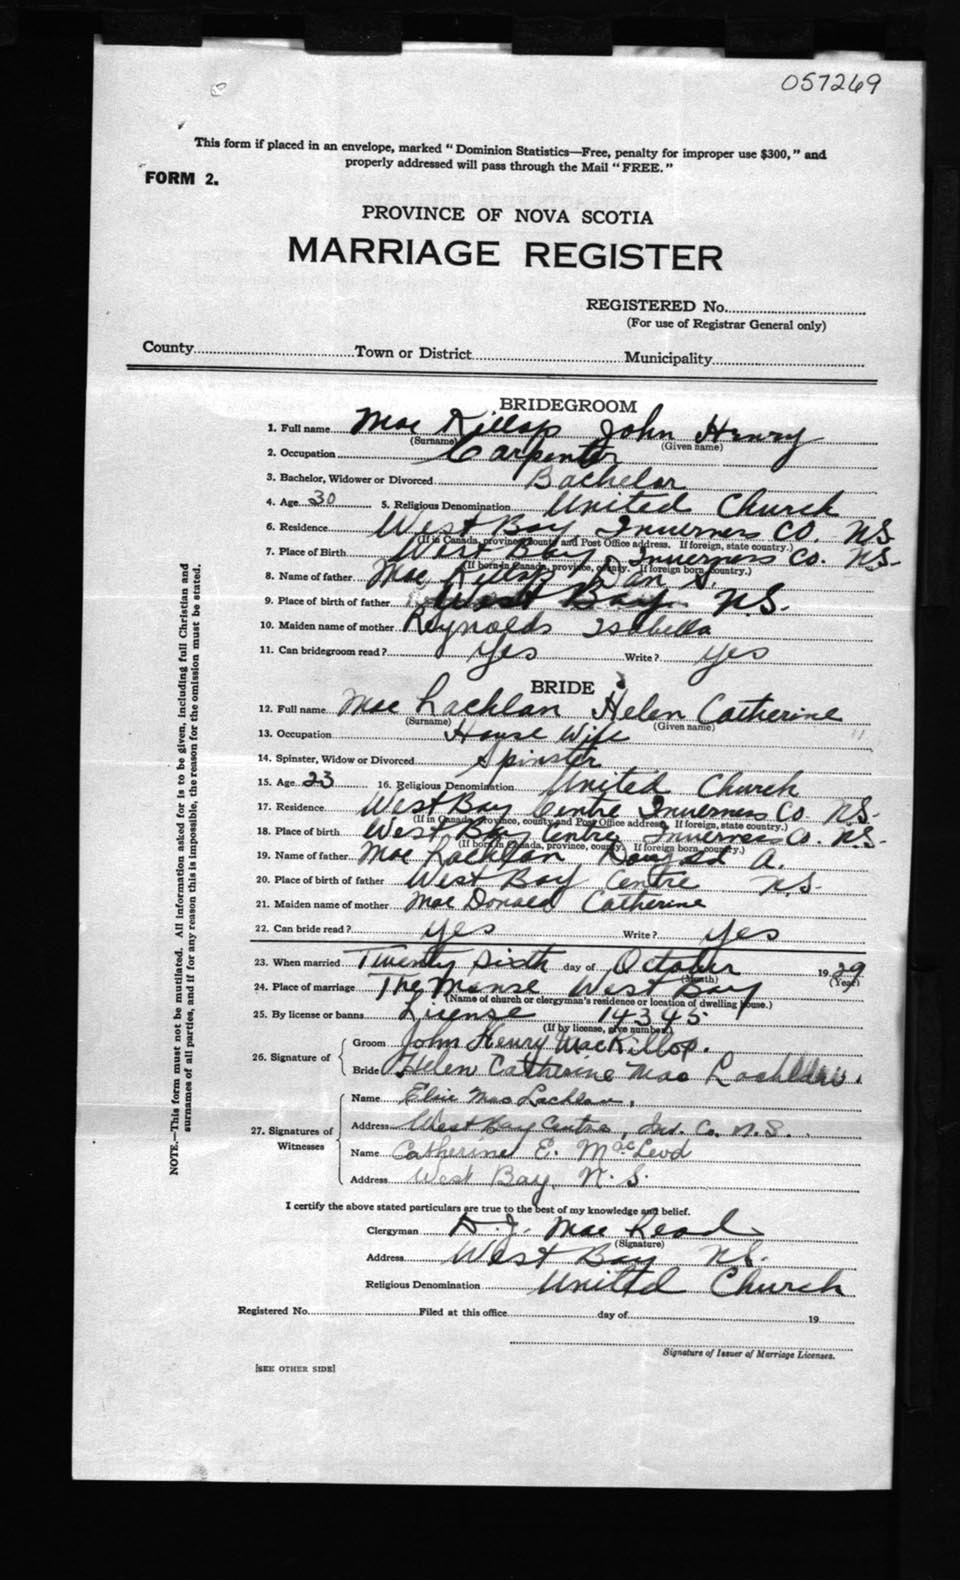 057269
This form if placed in an envelope, marked "Dominion Statistics—Free, penalty for improper use $300," and
properly addressed will pass through the Mail "FREE."
FORM 2.
PROVINCE OF NOVA SCOTIA
MARRIAGE REGISTER
REGISTERED No.
(For use of Registrar General only)
County Town or District Municipality
NOTE.—This form must not be mutilated. All information asked for is to be given, including full Christian and
surnames of all parties, and if for any reason this is impossible, the reason for the omission must be stated.
BRIDEGROOM
1. Full name Mac Killop John Henry
(Surname) (Given name)
2. Occupation Carpenter
3. Bachelor, Widower or Divorced Bachelor
4. Age 30 5. Religious Denomination United Church
6. Residence West Bay Inverness Co. N.S.
(If in Canada, province, county and Post Office address. If foreign, state country.)
7. Place of Birth West Bay Inverness Co. N.S.
(If born in Canada, province, county. If foreign born, country.)
8. Name of father Mac Killop Dan
9. Place of birth of father West Bay N.S.
10. Maiden name of mother Reynolds Isabella
11. Can bridegroom read? Yes Write? Yes
BRIDE
12. Full name Mac Lachlan Helen Catherine
(Surname) (Given name)
13. Occupation House Wife
14. Spinster, Widow or Divorced Spinster
15. Age 23 16. Religious Denomination United Church
17. Residence West Bay Centre Inverness Co. N.S.
(If in Canada, province, county and Post Office address. If foreign, state country.)
18. Place of birth West Bay Centre Inverness Co. N.S.
(If born in Canada, province, county. If foreign born, country.)
19. Name of father Mac Lachlan A.
20. Place of birth of father West Bay Centre N.S.
21. Maiden name of mother Mac Donald Catherine
22. Can bride read? Yes Write? Yes
23. When married Twenty Sixth day of October 1929
(Month) (Year)
24. Place of marriage The Manse West Bay
(Name of church or clergyman's residence or location of dwelling house.)
25. By license or banns License 14345
(If by license, give number)
26. Signature of
Groom John Henry MacKillop.
Bride Helen Catherine Mac Lachlan.
27. Signatures of
Witnesses
Name Elsie MacLachlan,
Address West Bay Centre, Inv. Co. N.S.
Name Catherine E. MacLeod
Address West Bay, N.S.
I certify the above stated particulars are true to the best of my knowledge and belief.
Clergyman Mac
(Signature)
Address West Bay N.S.
Religious Denomination United Church
Registered No. Filed at this office day of 19
Signature of Issuer of Marriage Licenses.
[SEE OTHER SIDE]